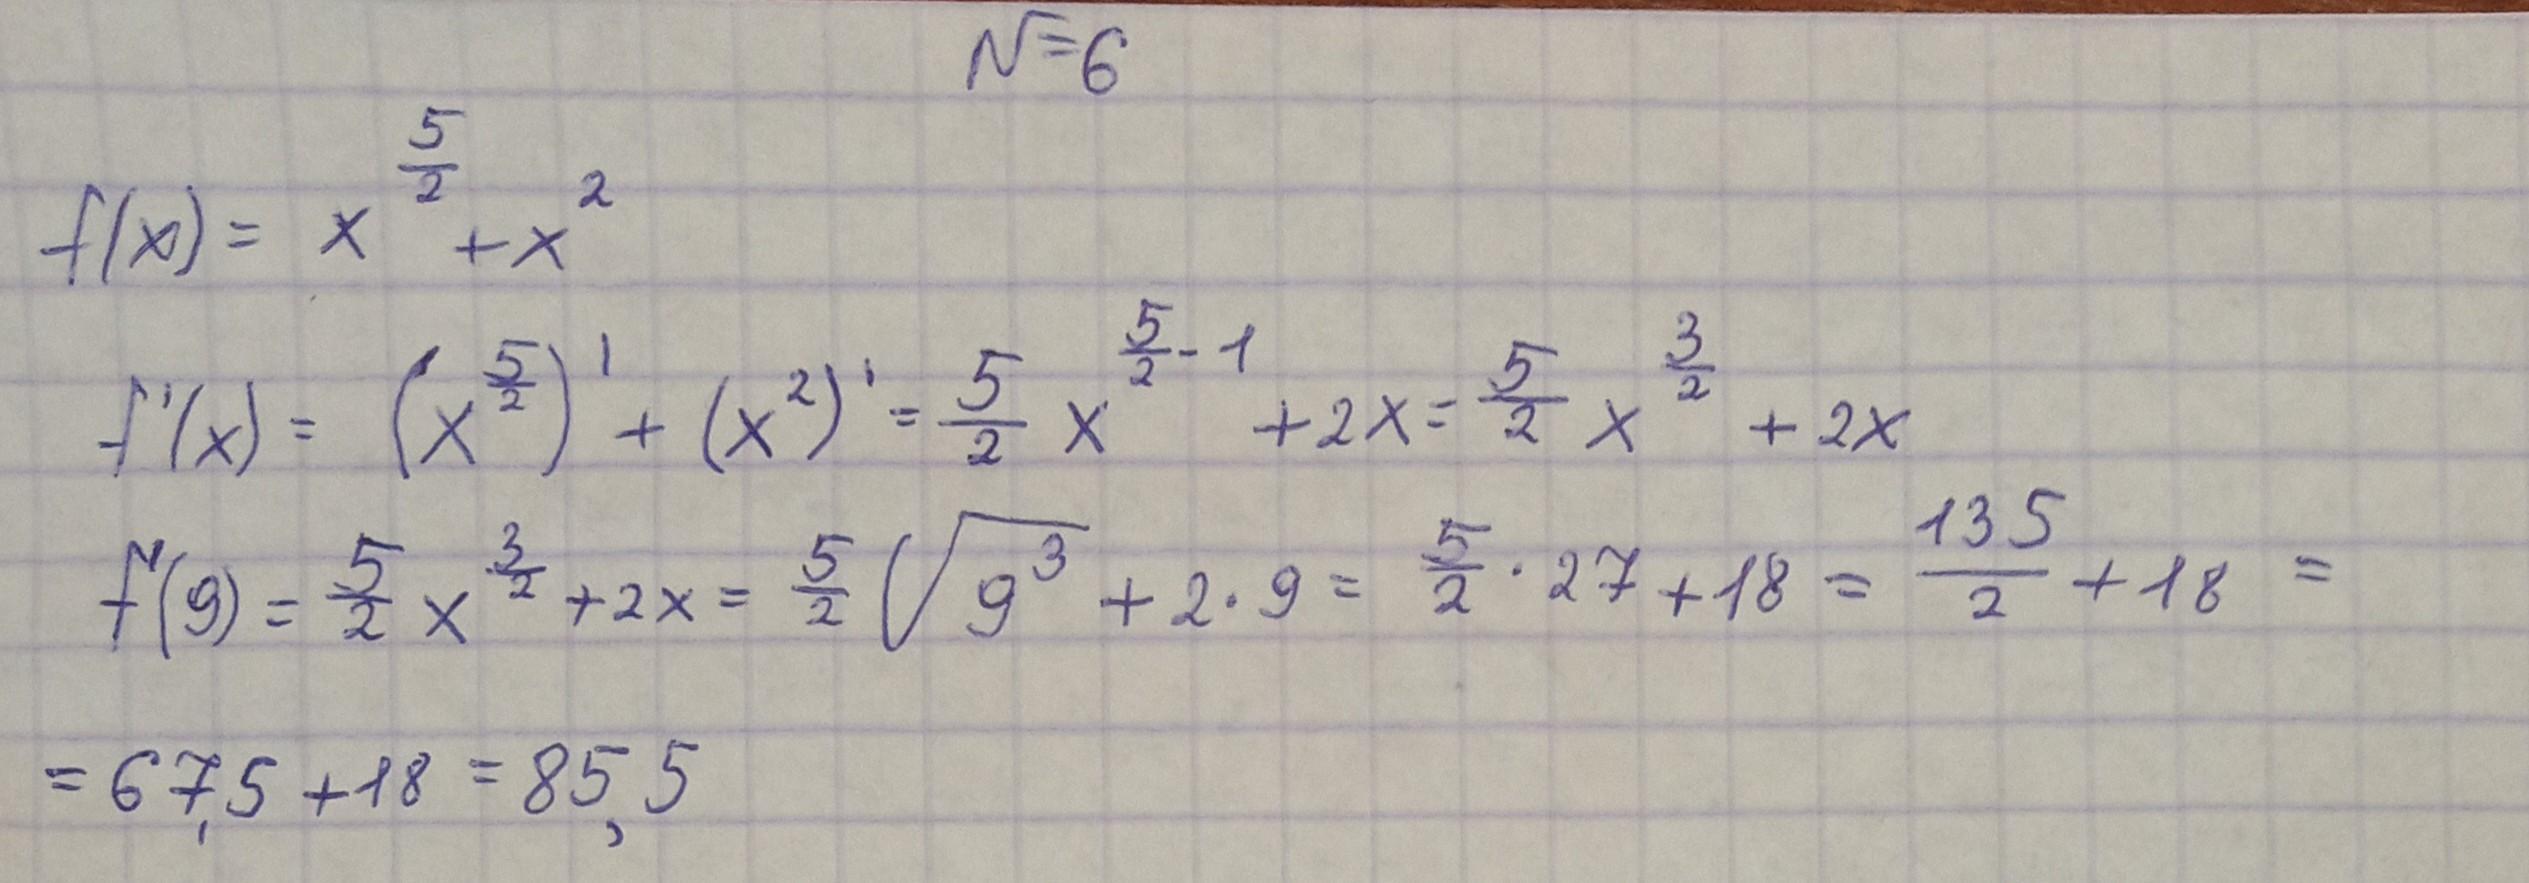 N=6
f(x) = x^{5/2} + x^2
f'(x) = (x^{5/2})' + (x^2)' = \frac{5}{2} x^{\frac{5}{2} - 1} + 2x = \frac{5}{2} x^{\frac{3}{2}} + 2x
f'(9) = \frac{5}{2} x^{\frac{3}{2}} + 2x = \frac{5}{2} \sqrt{9^3} + 2·9 = \frac{5}{2} · 27 + 18 = \frac{135}{2} + 18 =
= 67,5 + 18 = 85,5